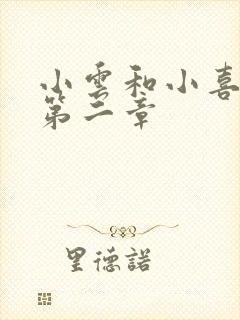 小雲和小喜
第二章
里德諾